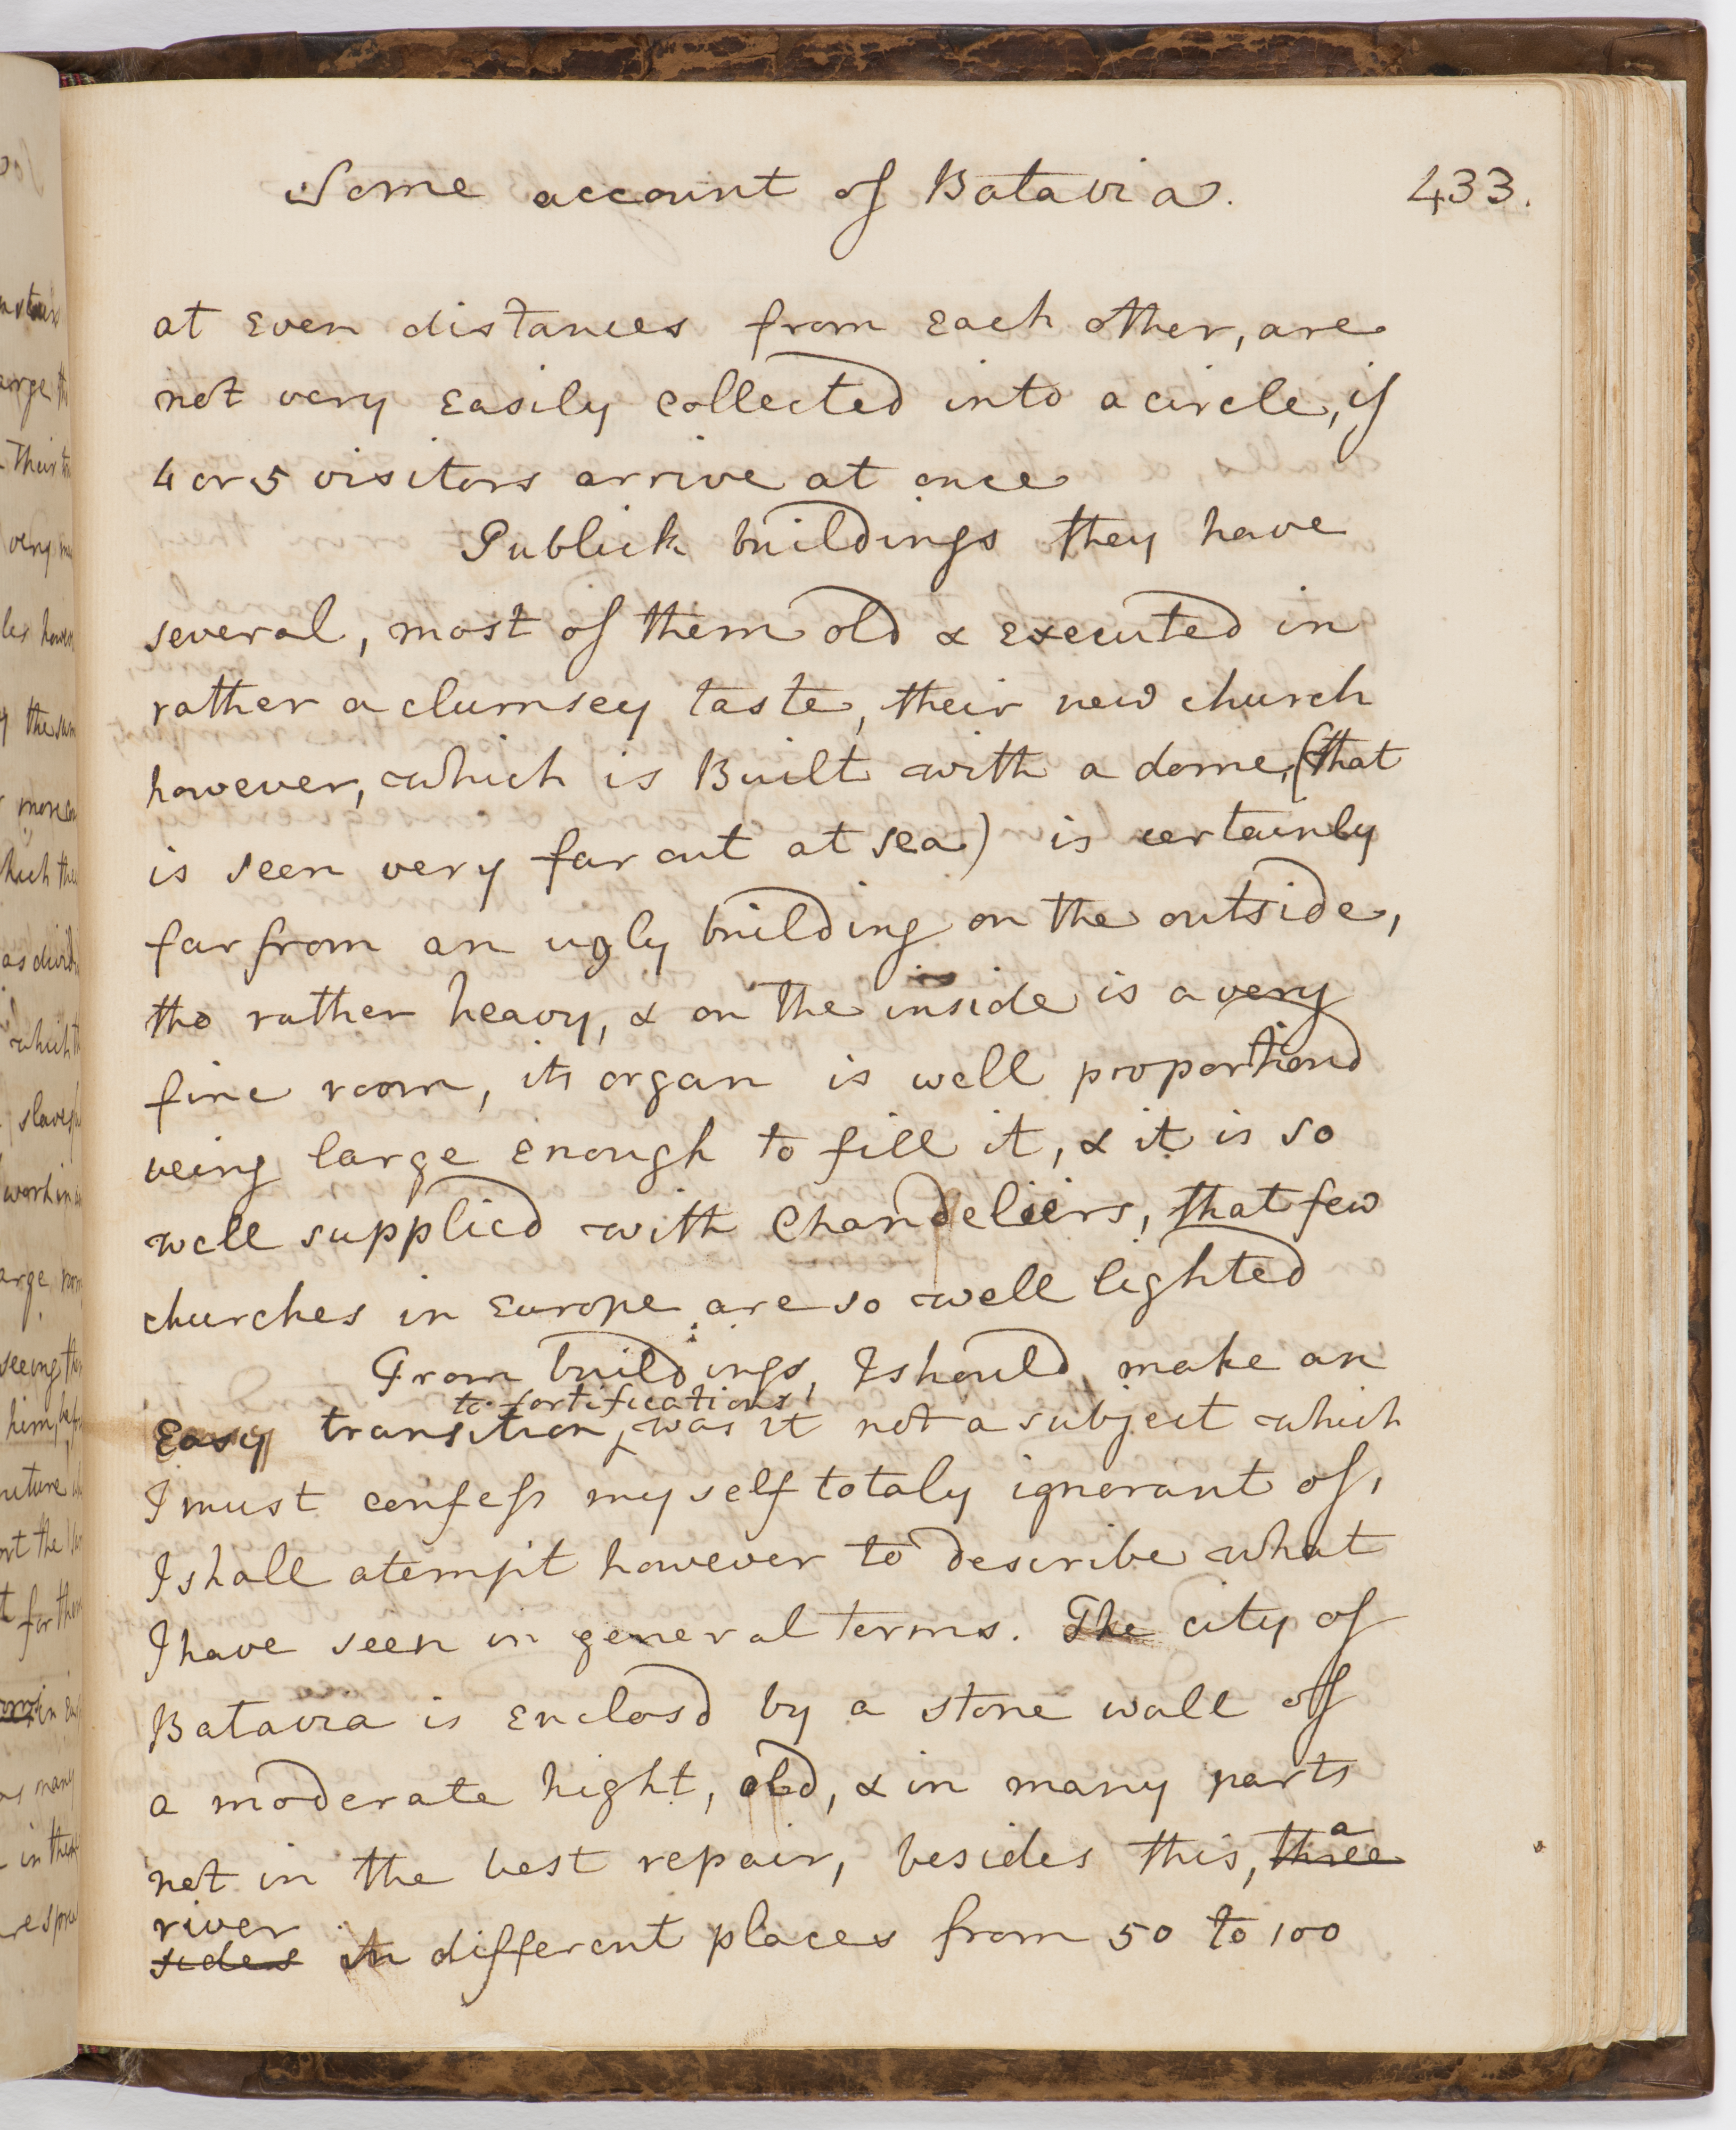 Some account of Batavia. 433.
at Even distances from Each other, are
not very Easily collected into a circle, if
4 or 5 visitors arrive at once
Publick buildings they have
several, most of them old & Executed in
rather a clumsey taste, their new church
however, which is Built with a dome, (that
is seen very far out at sea) is certainly
far from an ugly building on the outside,
tho rather heavy, & on the inside is a very
fine room, its organ is well proportiond
being large Enough to fill it, & it is so
well supplied with Chandeliers, that few
churches in Europe are so well lighted
From buildings, I should make an
to fortifications,
Easy transition, was it not a subject which
I must confess my self totaly ignorant of,
I shall atempt however to describe what
I have seen in general terms. The city of
Batavia is Enclosd by a stone wall of
a moderate hight, old, & in many parts
not in the best repair, besides this, three a
river
sides in different places from 50 to 100